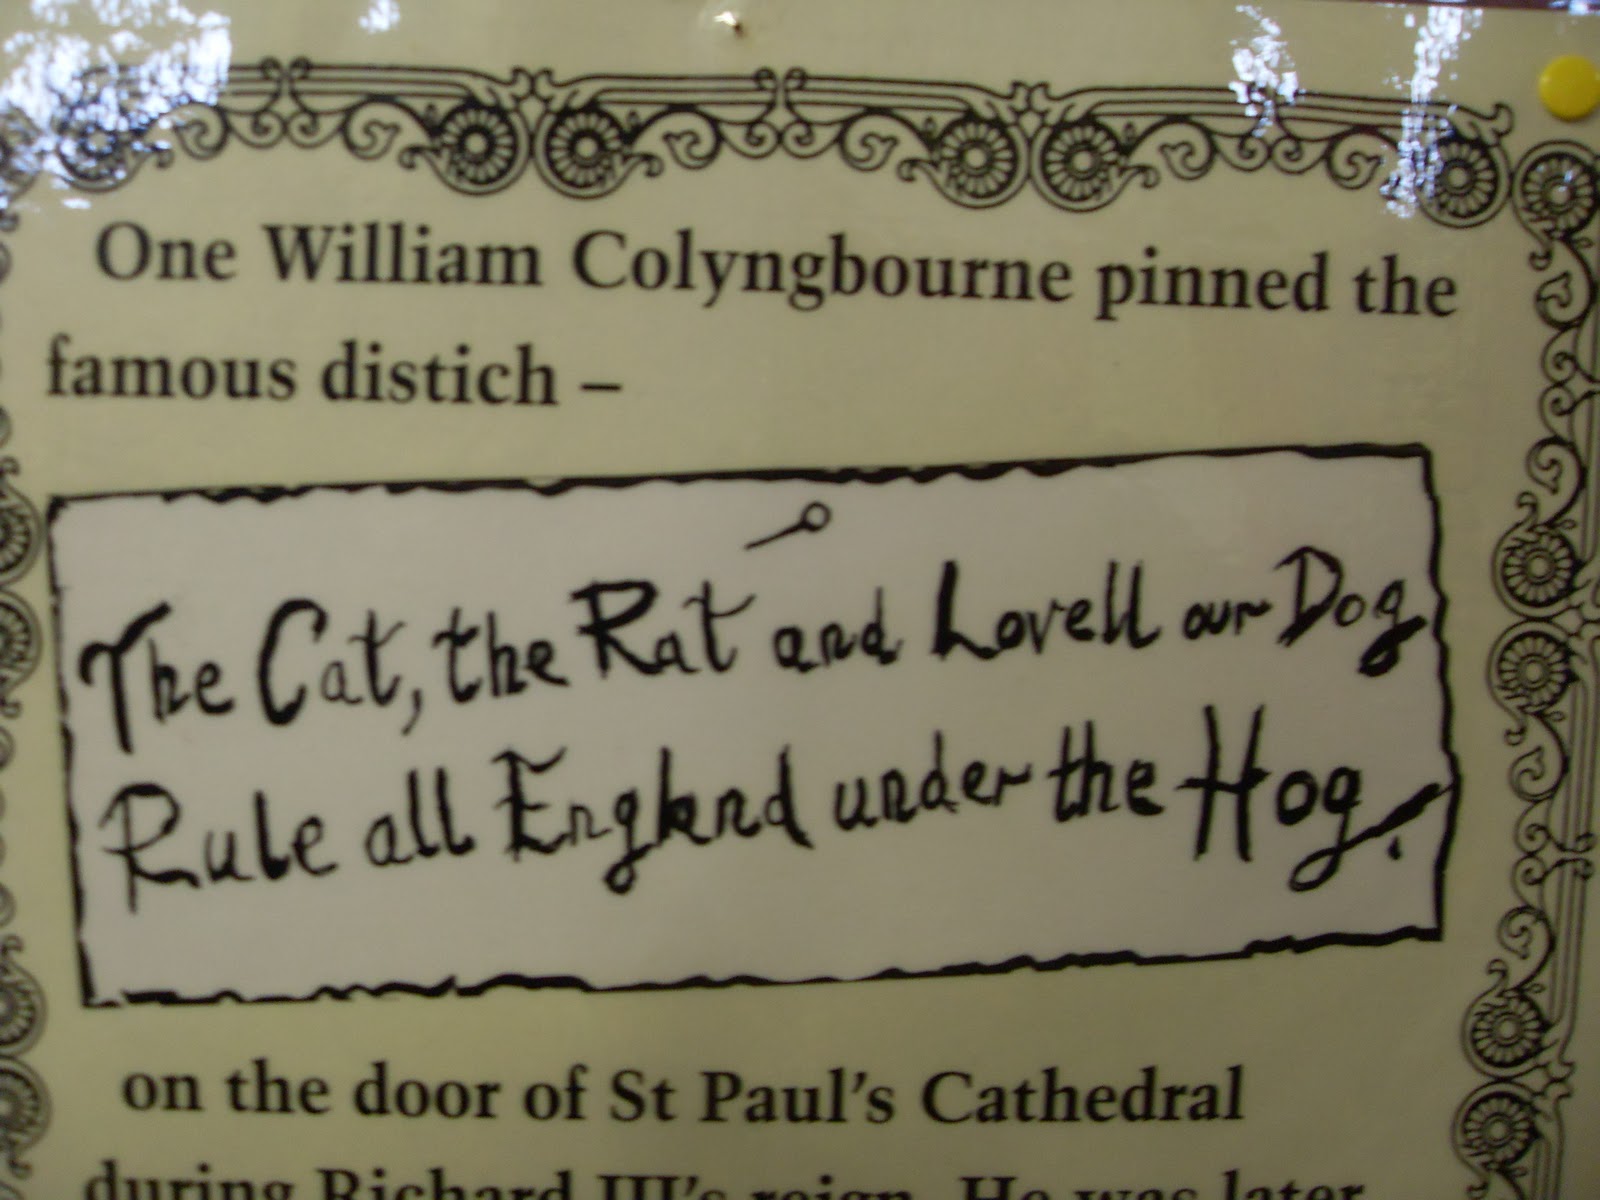 One William Colyngbourne pinned the
famous distich –
The Cat, the Rat and Lovell our Dog
Rule all England under the Hog.
on the door of St Paul's Cathedral
during Richard III's reign. He was later